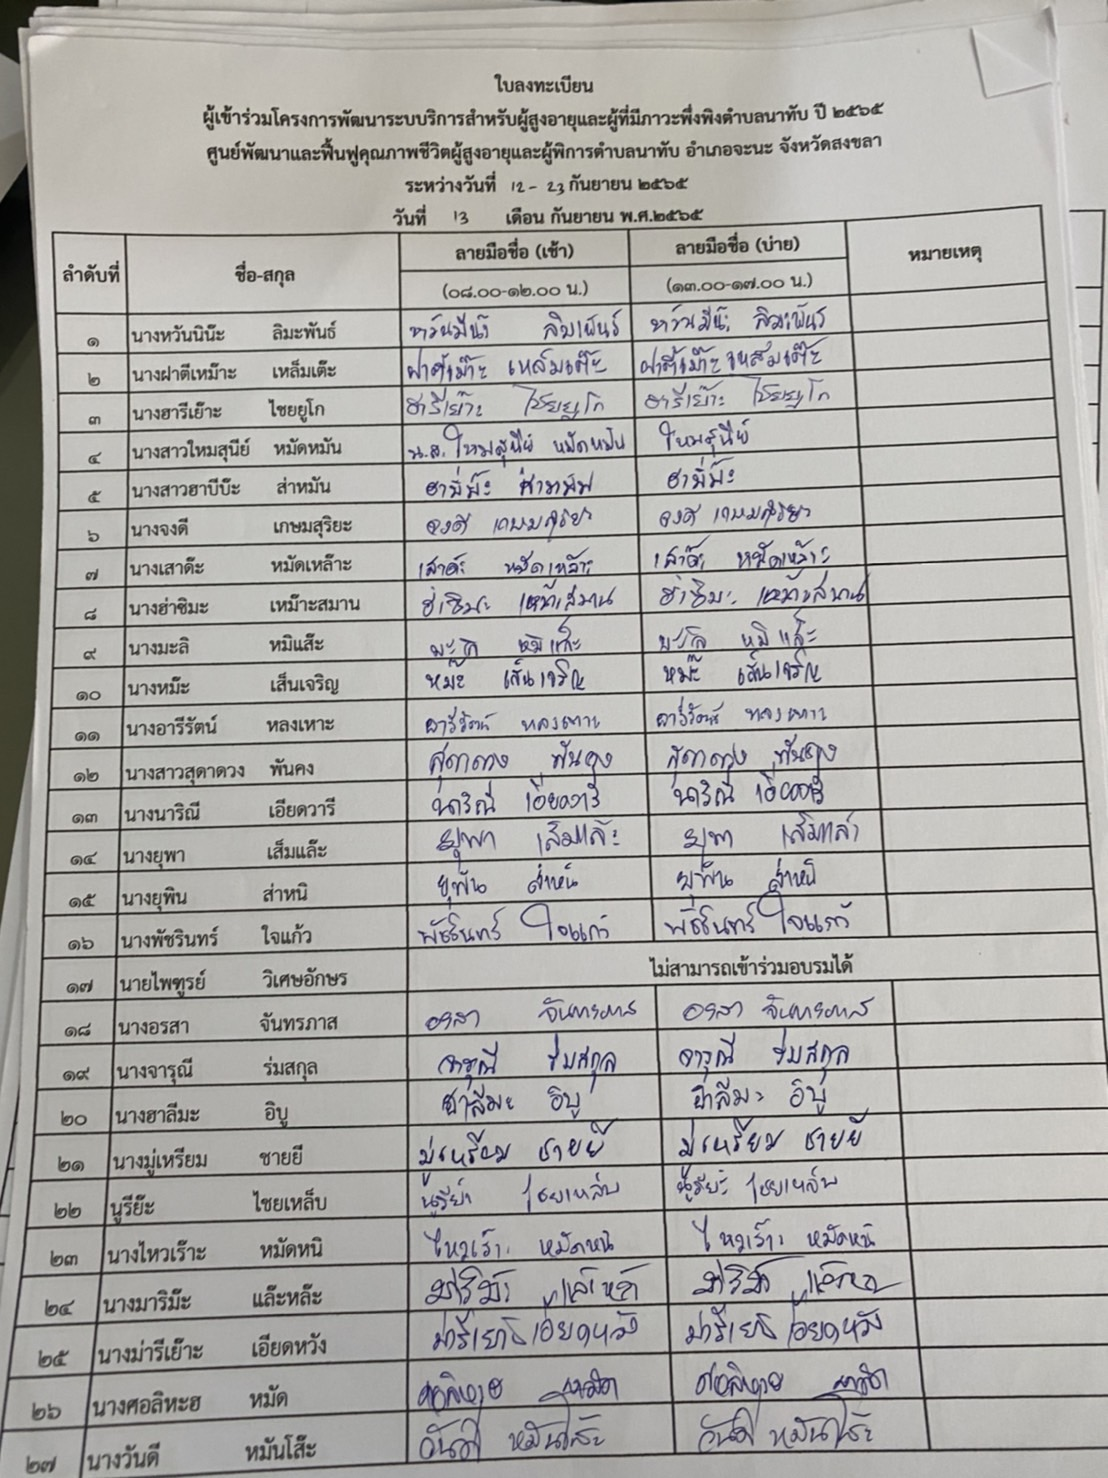 ใบลงทะเบียน
ผู้เข้าร่วมโครงการพัฒนาระบบริการสำหรับผู้สูงอายุและผู้ที่มีภาวะพึ่งพิงตำบลนาทับ ปี ๒๕๖๕
ศูนย์พัฒนาและฟื้นฟูคุณภาพชีวิตผู้สูงอายุและผู้พิการตำบลนาทับ อำเภอจะนะ จังหวัดสงขลา
ระหว่างวันที่ 12 - 23 กันยายน ๒๕๖๕
วันที่ 13 เดือน กันยายน พ.ศ.๒๕๖๕
ลำดับที่ ชื่อ-สกุล ลายมือชื่อ (เช้า) ลายมือชื่อ (บ่าย) หมายเหตุ
(๐๘.๐๐-๑๒.๐๐ น.) (๑๓.๐๐-๑๗.๐๐ น.)
๑ นางหวันนิน๊ะ ลิมะพันธ์ หวันมีน๊ะ ลิมะพันธ์ หวันมีน๊ะ ลิมะพันธ์
๒ นางฝาตีเหม๊าะ เหล็มเต๊ะ ฝาตีเม๊าะ เหล็มเต๊ะ ฝาตีเม๊าะ เหล็มเต๊ะ
๓ นางฮารีเย๊าะ ไชยยูโก ฮารีเย๊าะ ไชยยูโก ฮารีเย๊าะ ไชยยูโก
๔ นางสาวใหมสุนีย์ หมัดหมัน น.ส.ใหมสุนีย์ หมัดหมัน ใหมสุนีย์
๕ นางสาวฮาบีบ๊ะ ส่าหมัน
๖ นางจงดี เกษมสุริยะ จงดี เกษมสุริยะ จงดี เกษมสุริยะ
๗ นางเสาด๊ะ หมัดเหล๊าะ เสาด๊ะ หมัดเหล๊าะ เสาด๊ะ หมัดเหล๊าะ
๘ นางฮ่าซิมะ เหม๊าะสมาน ฮ่าซิมะ ฮ่าซิมะ
๙ นางมะลิ หมิแส๊ะ มะลิ มะลิ
๑๐ นางหม๊ะ เส็นเจริญ หม๊ะ เส็นเจริญ หม๊ะ เส็นเจริญ
๑๑ นางอารีรัตน์ หลงเหาะ อารีรัตน์ หลงเหาะ อารีรัตน์ หลงเหาะ
๑๒ นางสาวสุดาดวง พันคง สุดาดวง พันคง สุดาดวง พันคง
๑๓ นางนาริณี เอียดวารี นาริณี เอียดวารี นาริณี เอียดวารี
๑๔ นางยุพา เส็มแล๊ะ ยุพา เส็มแล๊ะ ยุพา
๑๕ นางยุพิน ส่าหนิ ยุพิน ส่าหนิ ยุพิน ส่าหนิ
๑๖ นางพัชรินทร์ ใจแก้ว พัชรินทร์ ใจแก้ว พัชรินทร์ ใจแก้ว
๑๗ นายไพฑูรย์ วิเศษอักษร ไม่สามารถเข้าร่วมอบรมได้
๑๘ นางอรสา จันทรภาส อรสา จันทรภาส อรสา จันทรภาส
๑๙ นางจารุณี ร่มสกุล จารุณี ร่มสกุล จารุณี ร่มสกุล
๒๐ นางฮาลีมะ อิบู ฮาลีมะ อิบู ฮาลีมะ อิบู
๒๑ นางมู่เหรียม ชายยี มู่เหรียม ชายยี มู่เหรียม ชายยี
๒๒ นูรีย๊ะ ไชยเหล็บ ไชยเหล็บ ไชยเหล็บ
๒๓ นางไหวเร๊าะ หมัดหนิ ไหวเร๊าะ หมัดหนิ ไหวเร๊าะ หมัดหนิ
๒๔ นางมาริม๊ะ แล๊ะหล๊ะ
๒๕ นางม่ารีเย๊าะ เอียดหวัง ม่ารีเย๊าะ เอียดหวัง ม่ารีเย๊าะ เอียดหวัง
๒๖ นางศอลิหะฮ หมัด
๒๗ นางวันดี หมันโส๊ะ วันดี หมันโส๊ะ วันดี หมันโส๊ะ